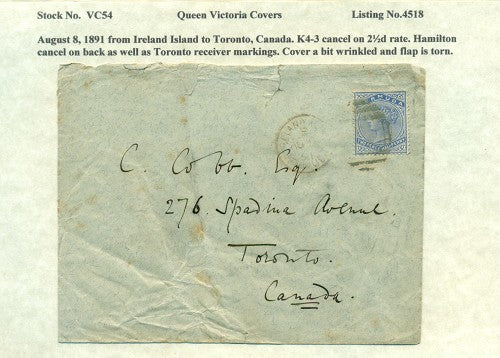 Stock No. VC54 Queen Victoria Covers Listing No.4518
August 8, 1891 from Ireland Island to Toronto, Canada. K4-3 cancel on 2½d rate. Hamilton
cancel on back as well as Toronto receiver markings. Cover a bit wrinkled and flap is torn.
C. Cobb. Esq.
276. Spadina Avenue.
Toronto.
Canada.